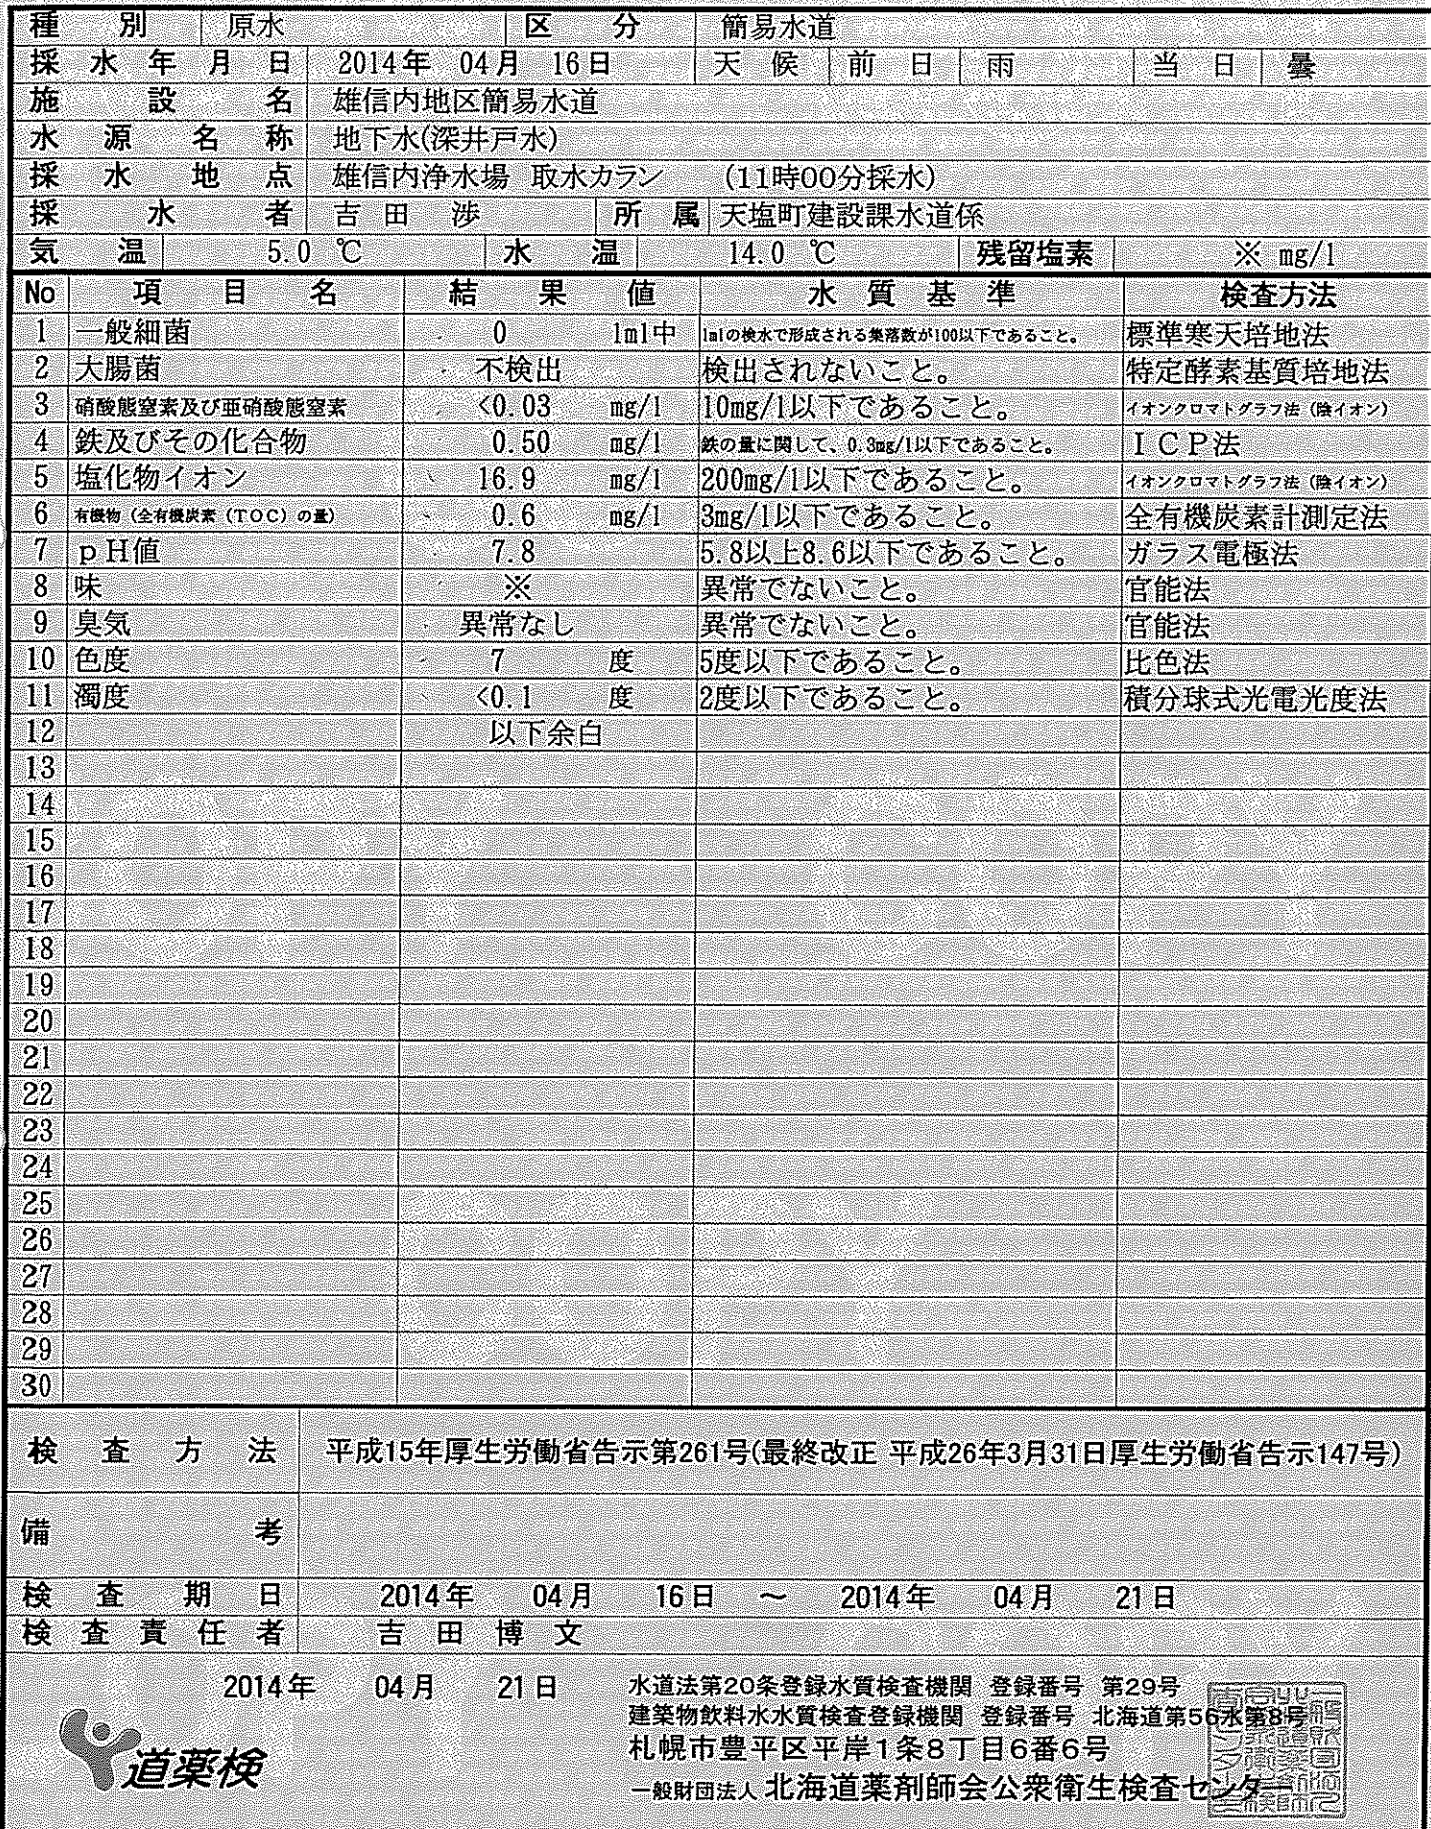 種別 原水 区分 簡易水道
採水年月日 2014年 04月 16日 天候 前日 雨 当日 曇
施設名 雄信内地区簡易水道
水源名称 地下水(深井戸水)
採水地点 雄信内浄水場 取水カラン (11時00分採水)
採水者 吉田 渉 所属 天塩町建設課水道係
気温 5.0 ℃ 水温 14.0 ℃ 残留塩素 ※ mg/l
No 項目名 結果値 水質基準 検査方法
1 一般細菌 0 1ml中 1mlの検水で形成される集落数が100以下であること。 標準寒天培地法
2 大腸菌 不検出 検出されないこと。 特定酵素基質培地法
3 硝酸態窒素及び亜硝酸態窒素 <0.03 mg/l 10mg/l以下であること。 イオンクロマトグラフ法(陰イオン)
4 鉄及びその化合物 0.50 mg/l 鉄の量に関して、0.3mg/l以下であること。 ICP法
5 塩化物イオン 16.9 mg/l 200mg/l以下であること。 イオンクロマトグラフ法(陰イオン)
6 有機物(全有機炭素(TOC)の量) 0.6 mg/l 3mg/l以下であること。 全有機炭素計測定法
7 pH値 7.8 5.8以上8.6以下であること。 ガラス電極法
8 味 ※ 異常でないこと。 官能法
9 臭気 異常なし 異常でないこと。 官能法
10 色度 7 度 5度以下であること。 比色法
11 濁度 <0.1 度 2度以下であること。 積分球式光電光度法
12 以下余白
13
14
15
16
17
18
19
20
21
22
23
24
25
26
27
28
29
30
検査方法 平成15年厚生労働省告示第261号(最終改正 平成26年3月31日厚生労働省告示147号)
備考
検査期日 2014年 04月 16日 ~ 2014年 04月 21日
検査責任者 吉田博文
2014年 04月 21日
水道法第20条登録水質検査機関 登録番号 第29号
建築物飲料水水質検査登録機関 登録番号 北海道第56水第8号
札幌市豊平区平岸1条8丁目6番6号
一般財団法人 北海道薬剤師会公衆衛生検査センター
道薬検